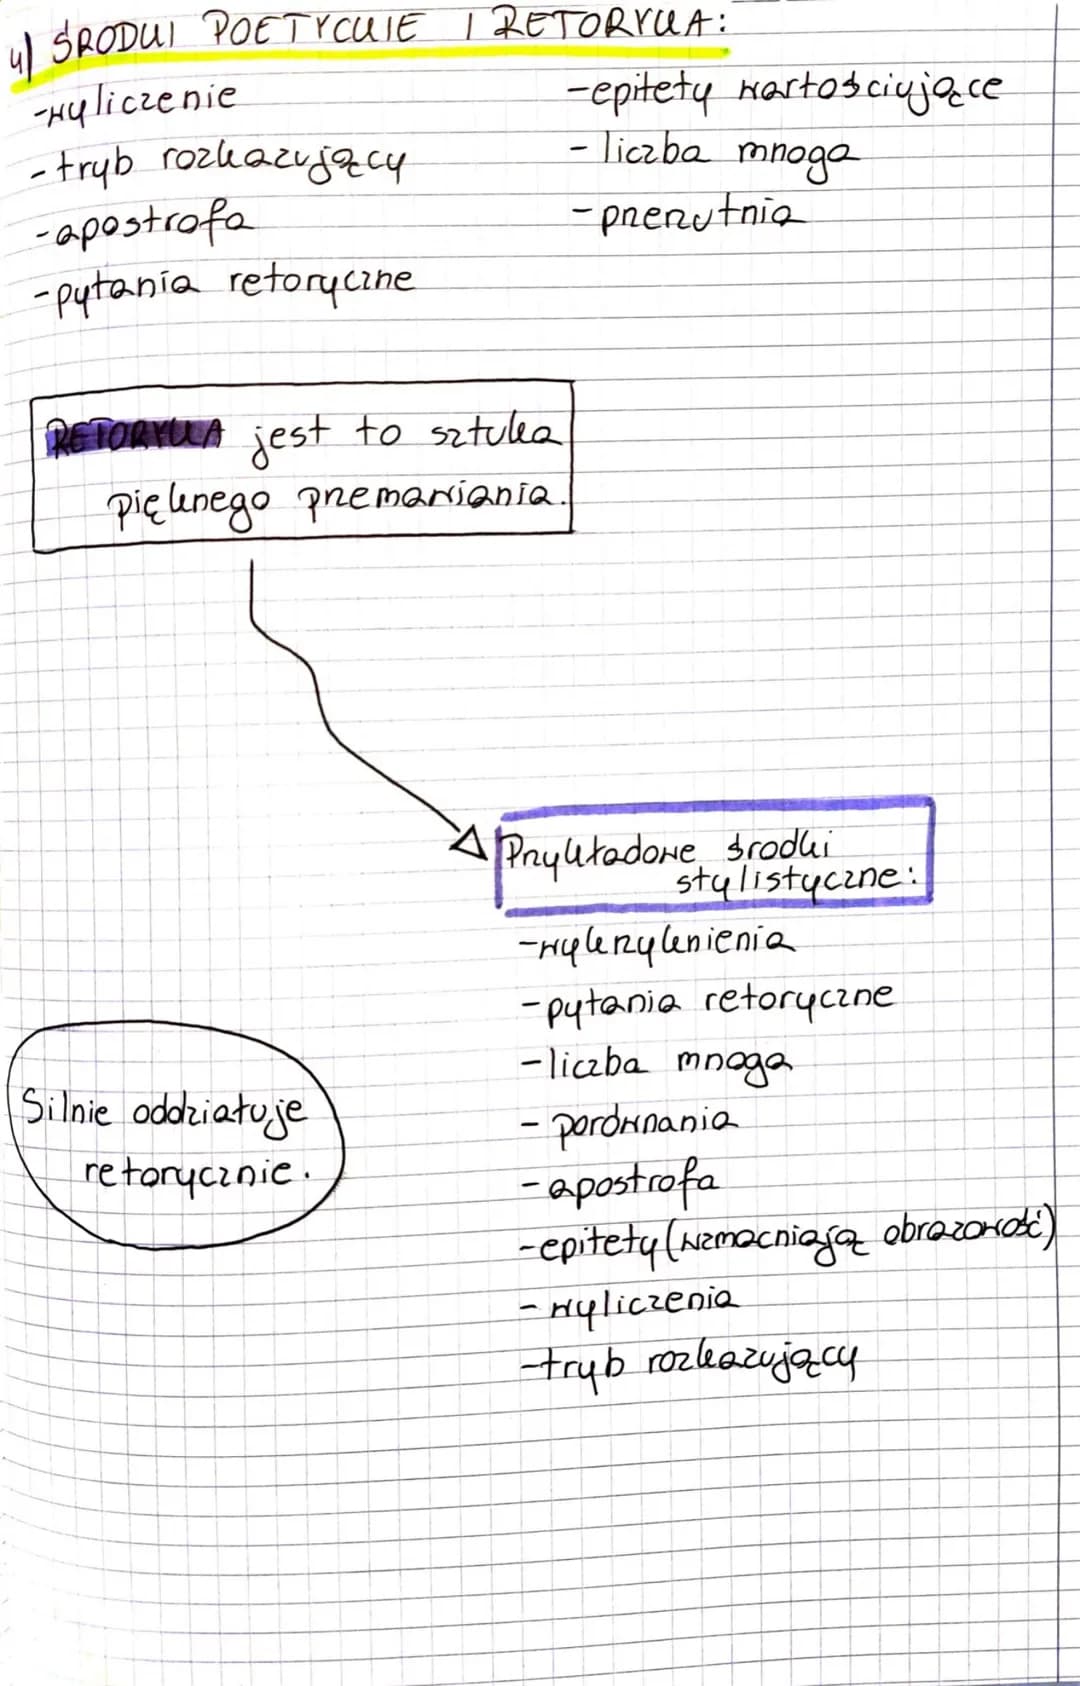 4) ŚRODKI POETYCKIE I RETORYKA:
-wyliczenie
-tryb rozkazujący
-apostrofa
-pytania retoryczne
-epitety wartościujące
-liczba mnoga
-przerzutnia
RETORYKA jest to sztuka
pięknego przemawiania.
Przykładowe środki
stylistyczne:
-wykrzyknienia
-pytania retoryczne
-liczba mnoga
-porównania
-apostrofa
-epitety (wzmacniają obrazowość)
-wyliczenia
-tryb rozkazujący
Silnie oddziałuje
retorycznie.